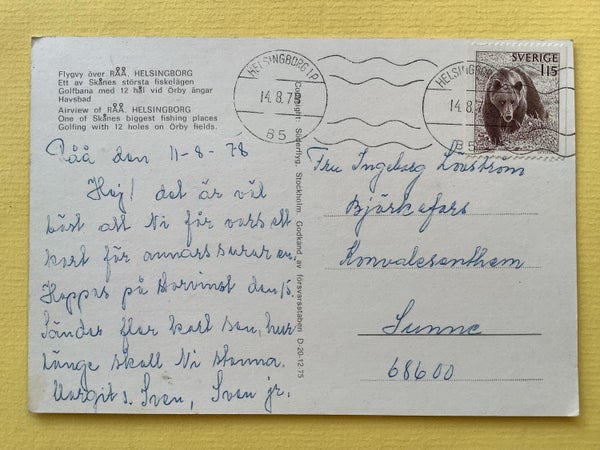 Flygvy över RÅÅ, HELSINGBORG
Ett av Skånes största fiskelägen
Golfbana med 12 hål vid Örby ängar
Havsbad
Airview of RÅÅ, HELSINGBORG
One of Skånes biggest fishing places
Golfing with 12 holes on Örby fields.
Råå den 11-8-78
Hej! det är väl
bäst att Ni får vars ett
kort för annars surar en.
Hoppas på Storvinst den 15.
Sänder fler kort sen, hur
länge skall Ni stanna.
Margit o. Sven, Sven jr.
Copyright: Söderflyg, Stockholm. Godkänd av försvarsstaben D-20-12-75
HELSINGBORG 1 P
14.8.78
85
HELSINGBORG
14.8.7
85
SVERIGE
115
Fru Ingeborg Lövström
Björkefors
Konvalesenthem
Sunne
68600